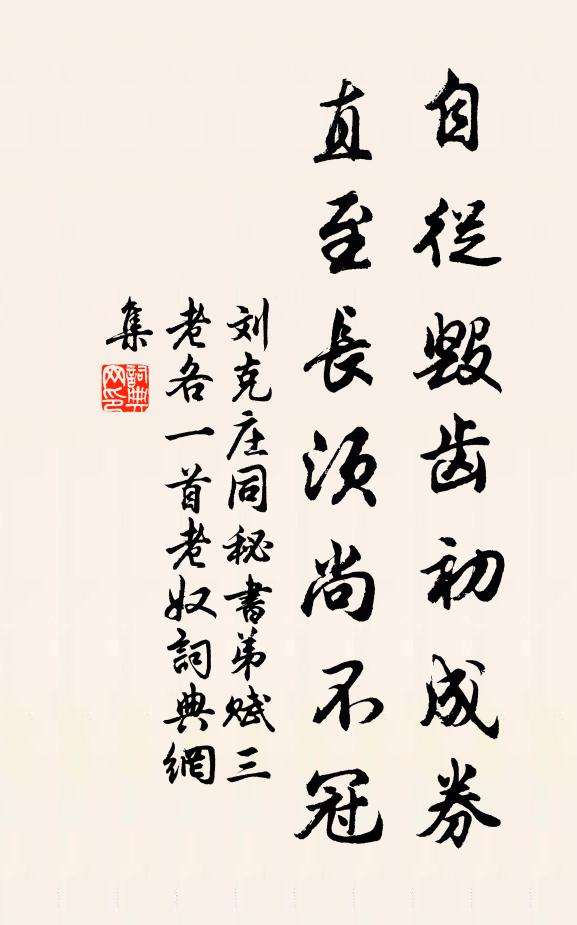 自從毀齒初成券
直至長須尚不冠
刘克庄同秘書弟赋三
老各一首老奴詞典網
集
詞典网印